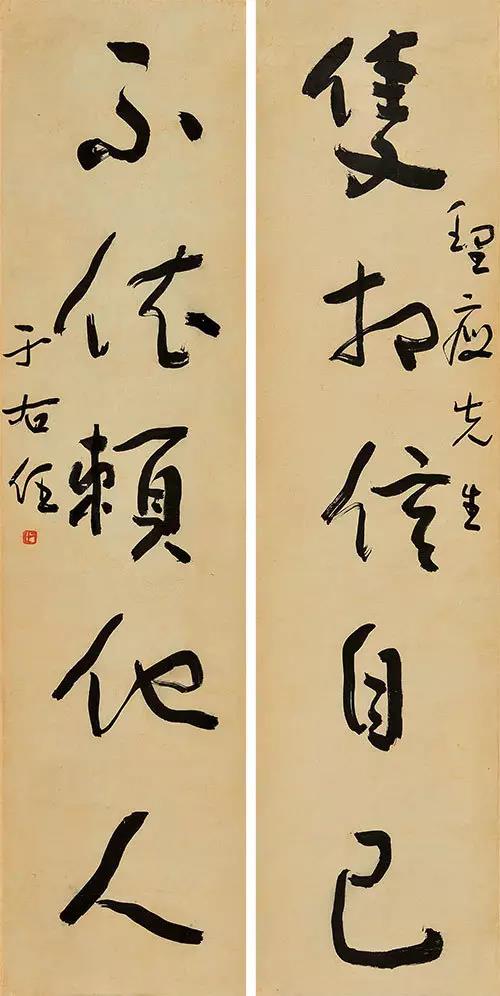 聖應先生
隻相信自己
不依賴他人
于右任